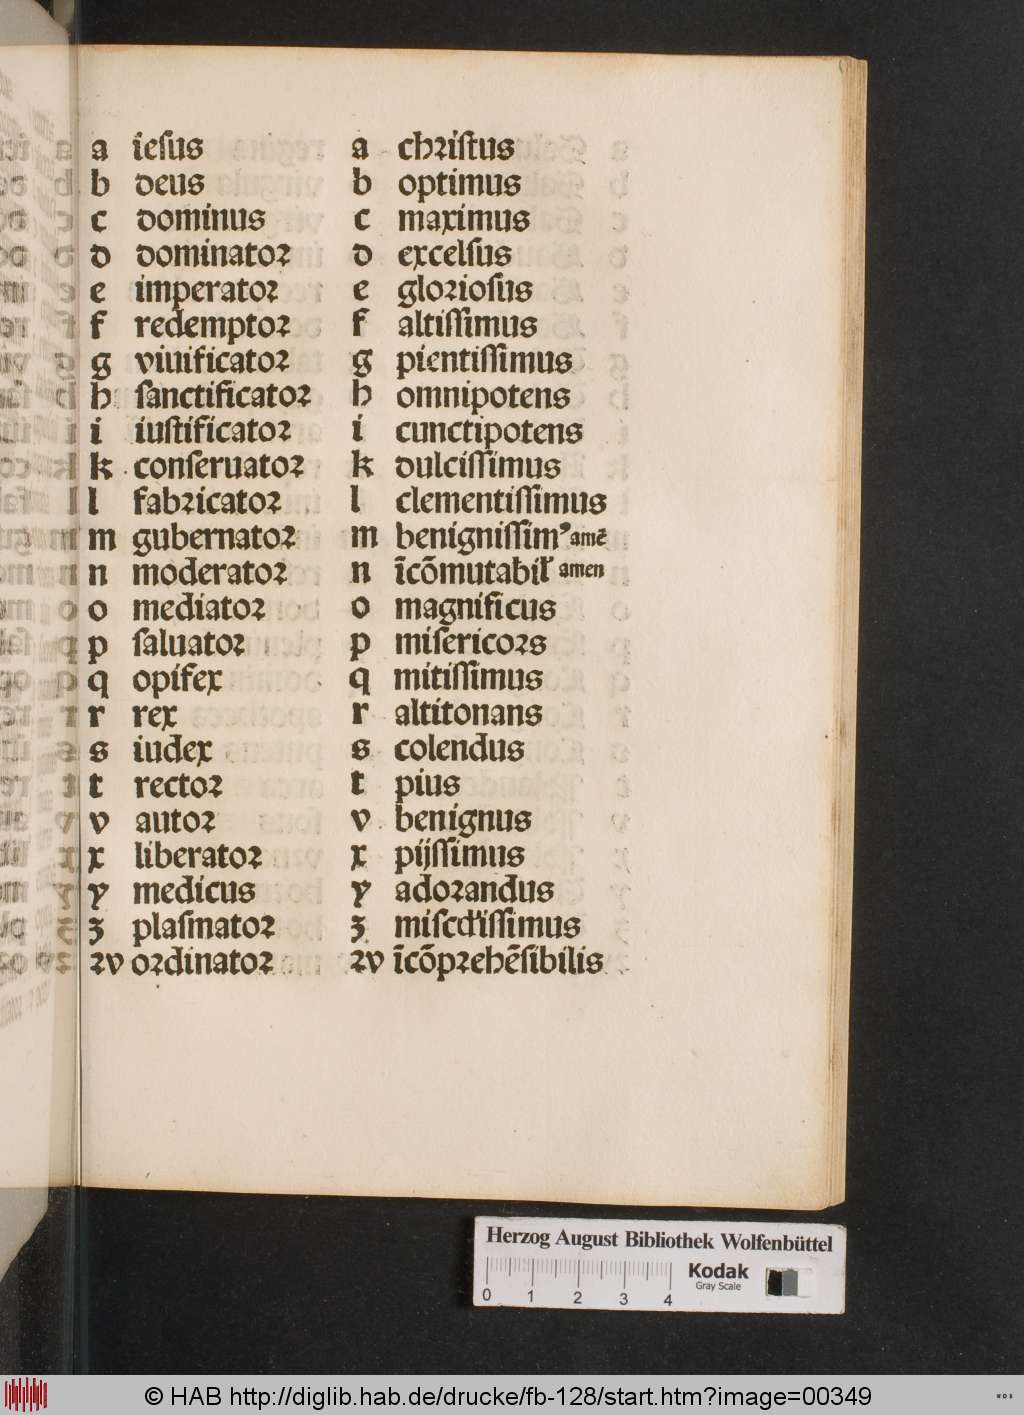 a iesus
b deus
c dominus
d dominator
e imperator
f redemptor
g viuificator
h sanctificator
i iustificator
k conseruator
l fabricator
m gubernator
n moderator
o mediator
p saluator
q opifex
r rex
s iudex
t rector
v autor
x liberator
y medicus
z plasmator
rv ordinator
a christus
b optimus
c maximus
d excelsus
e gloriosus
f altissimus
g pientissimus
h omnipotens
i cunctipotens
k dulcissimus
l clementissimus
m benignissimꝰ amē
n īcōmutabil̛ amen
o magnificus
p misericors
q mitissimus
r altitonans
s colendus
t pius
v benignus
x pijssimus
y adorandus
z
rv īcōprehēsibilis
Herzog August Bibliothek Wolfenbüttel
Kodak
Gray Scale
0 1 2 3 4
© HAB http://diglib.hab.de/drucke/fb-128/start.htm?image=00349